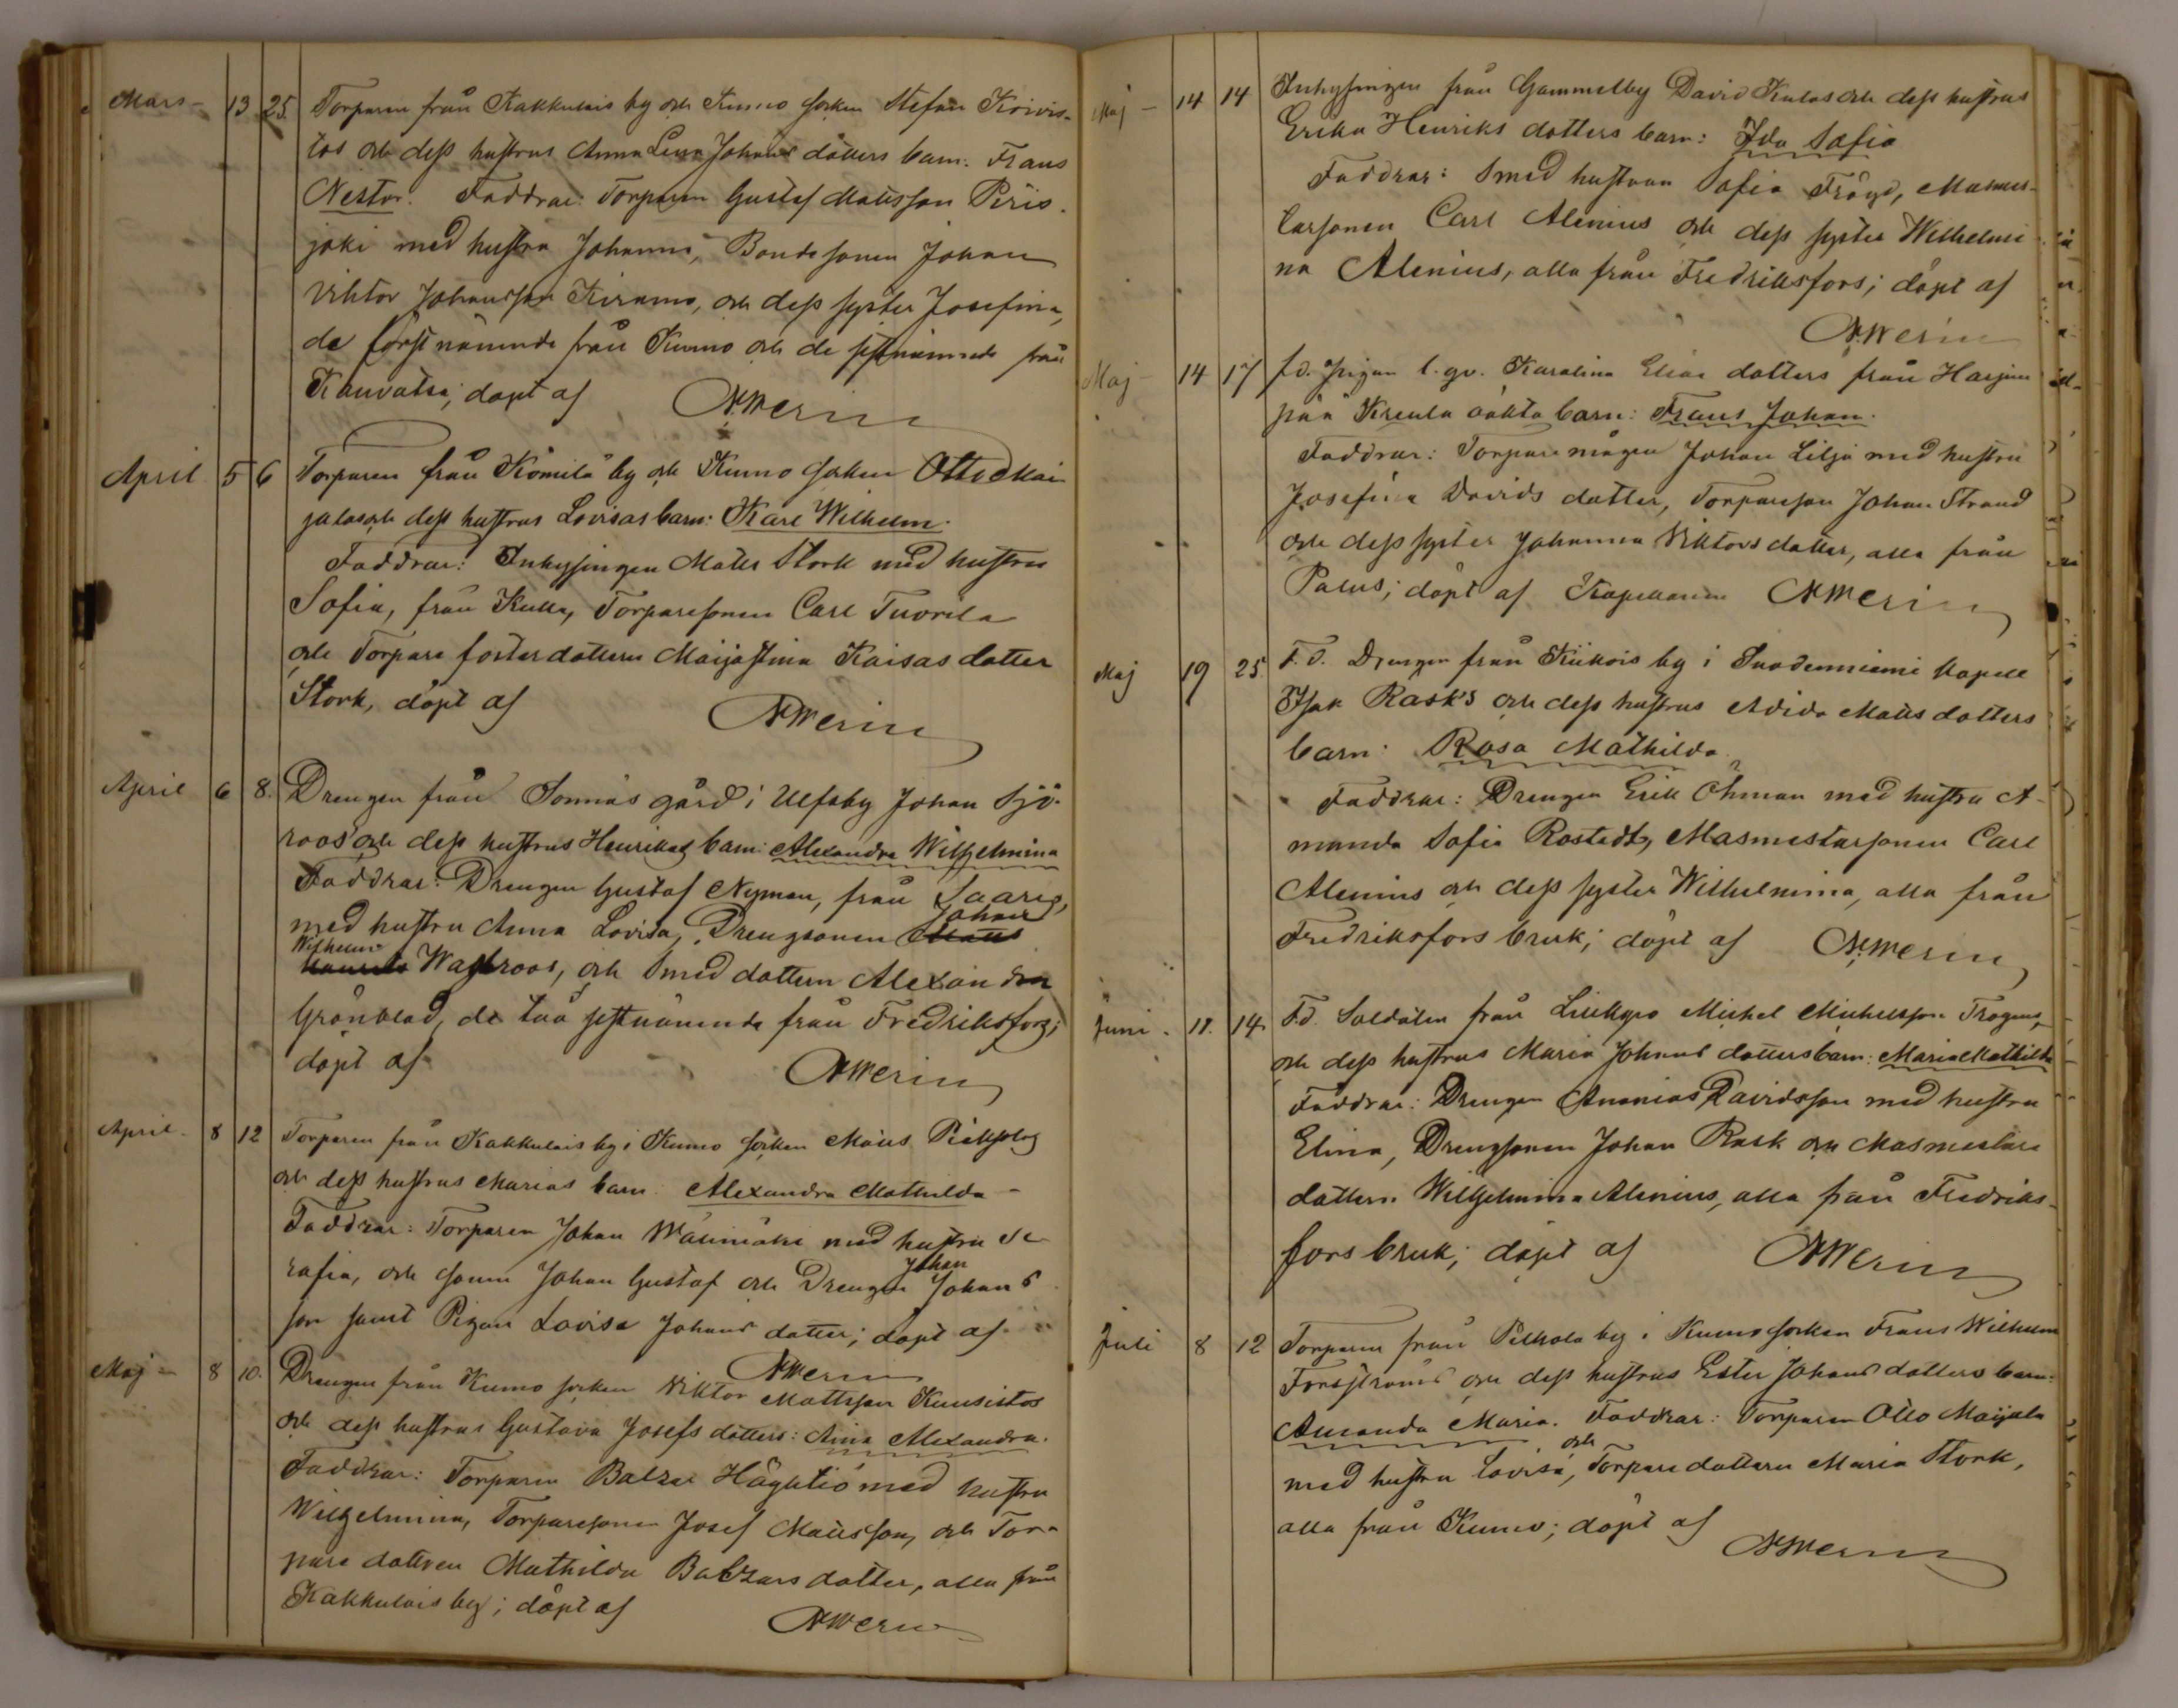 Mars - 13 25. Torparen från Kakkulais by och Kumo socken Stefan Koivis-
tos och dess hustrus Anna Lena Johans dotters barn: Frans
Nestor. Faddrar: Torparen Gustaf Mattsson Piris-
joki med hustru Johanna, Bondesonen Johan
Viktor Johansson Kiramo, och dess syster Josefina,
de förstnämnde från Kumo och de sistnämnde från
Kauvatsa; döpt af NWerin
April 5 6 Torparen från Kömilä by och Kumo socken Otto Mai-
jalas och dess hustrus Lovisas barn: Karl Wilhelm.
Faddrar: Inhysingen Matts Stork med hustru
Sofia, från Kulla, Torparesonen Carl Tuorila
och Torpare fosterdottern Maijastina Kaisas dotter
Stork, döpt af NWerin
April 6 8. Drengen från Sonnäs gård i Ulfsby Johan Sjö-
roos och dess hustrus Henrikas barn: Alexandra Wilhelmina
Faddrar: Drengen Gustaf Nyman, från Saaris,
med hustru Anna Lovisa, Drengsonen Johan
Wilhelm Wagbroos, och Smeddottern Alexandra
Grönblad, de två sistnämnda från Fredriksfors;
döpt af NWerin
April. 8 12 Torparen från Kakkulais by i Kumo socken Matts
och dess hustrus Marias barn: Alexandra Mathilda -
Faddrar: Torparen Johan Wälimäki med hustru Se-
rafia, och sonen Johan Gustaf och Drengen Johan Johans
son samt Pigan Lovisa Johans dotter; döpt af
NWerin
Maj - 8 10. Drengen från Kumo socken Viktor Mattsson Kuusistos
och dess hustrus Gustava Josefs dotters: Aina Alexandra.
Faddrar: Torparen Balzar Häyhtiö med hustru
Wilhelmina, Torparesonen Josef Mattsson, och Tor-
pare dottren Mathilda Balzars dotter, alla från
Kakkulais by; döpt af NWerin
Maj - 14 14 Inhysingen från Gammelby David Kulas och dess hustrus
Erika Henriks dotters barn: Ida Sofia
Faddrar: Smed hustrun Sofia Fröyd, Masmes-
tarsonen Carl Alenius och dess syster Wilhelmi
na Alenius, alla från Fredriksfors; döpt af
NWerin
Maj - 14 17 f.d. Pigan l. gv. Karolina Elias dotters från Harjun
pää Kreula oäkta barn: Frans Johan.
Faddrar: Torpare mågen Johan Lilja med hustru
Josefina Davids dotter, Torparson Johan Strand
och dess syster Johanna Viktors dotter, alla från
Palus; döpt af Kapellanen NWerin
Maj 19 25. F.d. Drengen från Kiikois by i Suodenniemi Kapell
Isak Rask's och dess hustrus Adida Matts dotters
barn: Rosa Mathilda
Faddrar: Drengen Erik Öhman med hustru A-
manda Sofia Rostedt, Masmestarsonen Carl
Alenius och dess syster Wilhelmina, alla från
Fredriksfors bruk; döpt af NWerin
Juni - 11. 14. F.d. Soldaten från Leikgro Michel Michelsson Trogens,
och dess hustrus Maria Johans dotters barn: Maria Mathilda
Faddrar: Drengen Ananias Davidsson med hustru
Elina, Drengsonen Johan Rask och Masmestare
dottern Wilhelmina Alenius, alla från Fredriks-
fors bruk; döpt af NWerin
Juli 8 12 Torparen från Pelhola by i Kumo socken Frans Wilhelm
Forsströms och dess hustrus Ester Johans dotters barn:
Amanda Maria. Faddrar: Torparen Otto Maijala
med hustru Lovisa, och Torpare dottern Maria Stork,
alla från Kumo; döpt af
NWerin